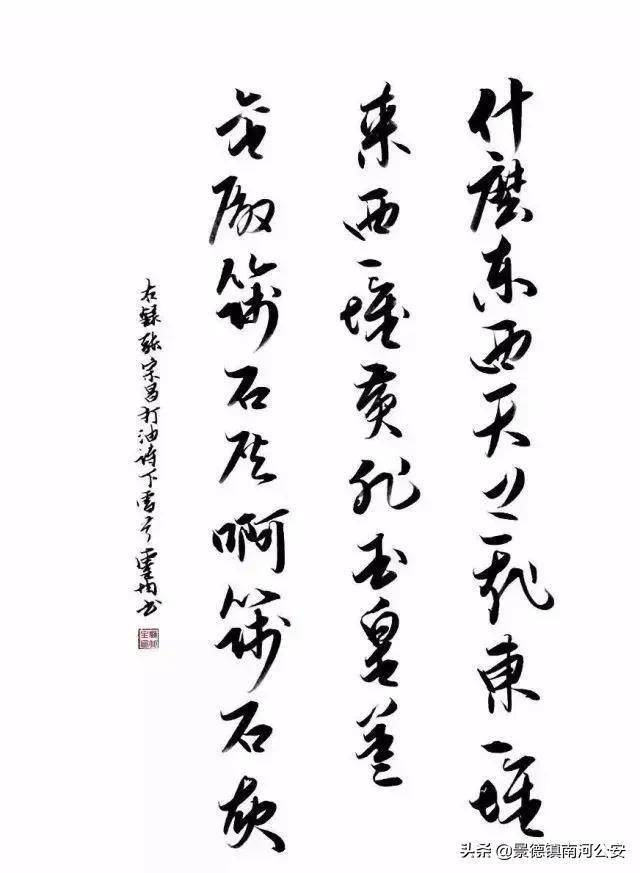 什麼东西天上飞東一堆
来西一堆莫非玉皇盖
金殿篩石灰啊篩石灰
右録張宗昌打油詩下雪 书
头条 @景德镇南河公安